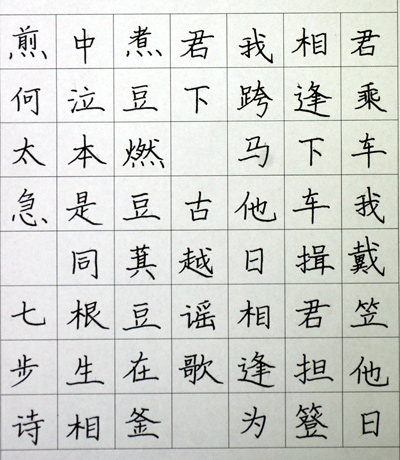 君乘车我戴笠他日
相逢下车揖君担簦
我跨马他日相逢为
君下 古越谣歌
煮豆燃豆萁豆在釜
中泣本是同根生相
煎何太急 七步诗